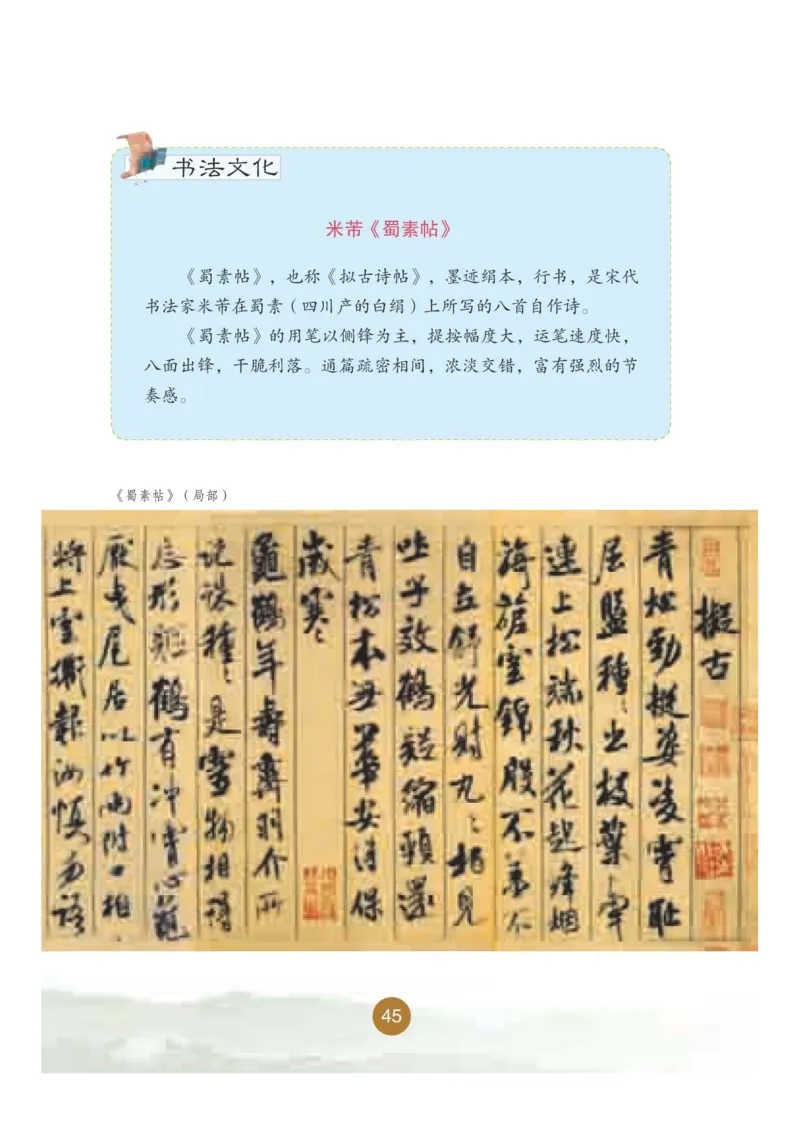 书法文化
米芾《蜀素帖》
《蜀素帖》，也称《拟古诗帖》，墨迹绢本，行书，是宋代
书法家米芾在蜀素（四川产的白绢）上所写的八首自作诗。
《蜀素帖》的用笔以侧锋为主，提按幅度大，运笔速度快，
八面出锋，干脆利落。通篇疏密相间，浓淡交错，富有强烈的节
奏感。
《蜀素帖》（局部）
擬古
青松勁挺姿凌霄恥
屈盤種〻出枝葉牽
連上松端秋花起絳烟
旖旎雲錦殷不羞不
自立舒光射丸〻柏見
吐子效鶴疑縮頸還
青松本無華安得保
歲寒〻
龜鶴年壽齊羽介所
託殊種〻是靈物相得
忘形軀鶴有沖霄心龜
厭曳尾居以竹兩附口相
將上雲衢報汝慎勿語
45